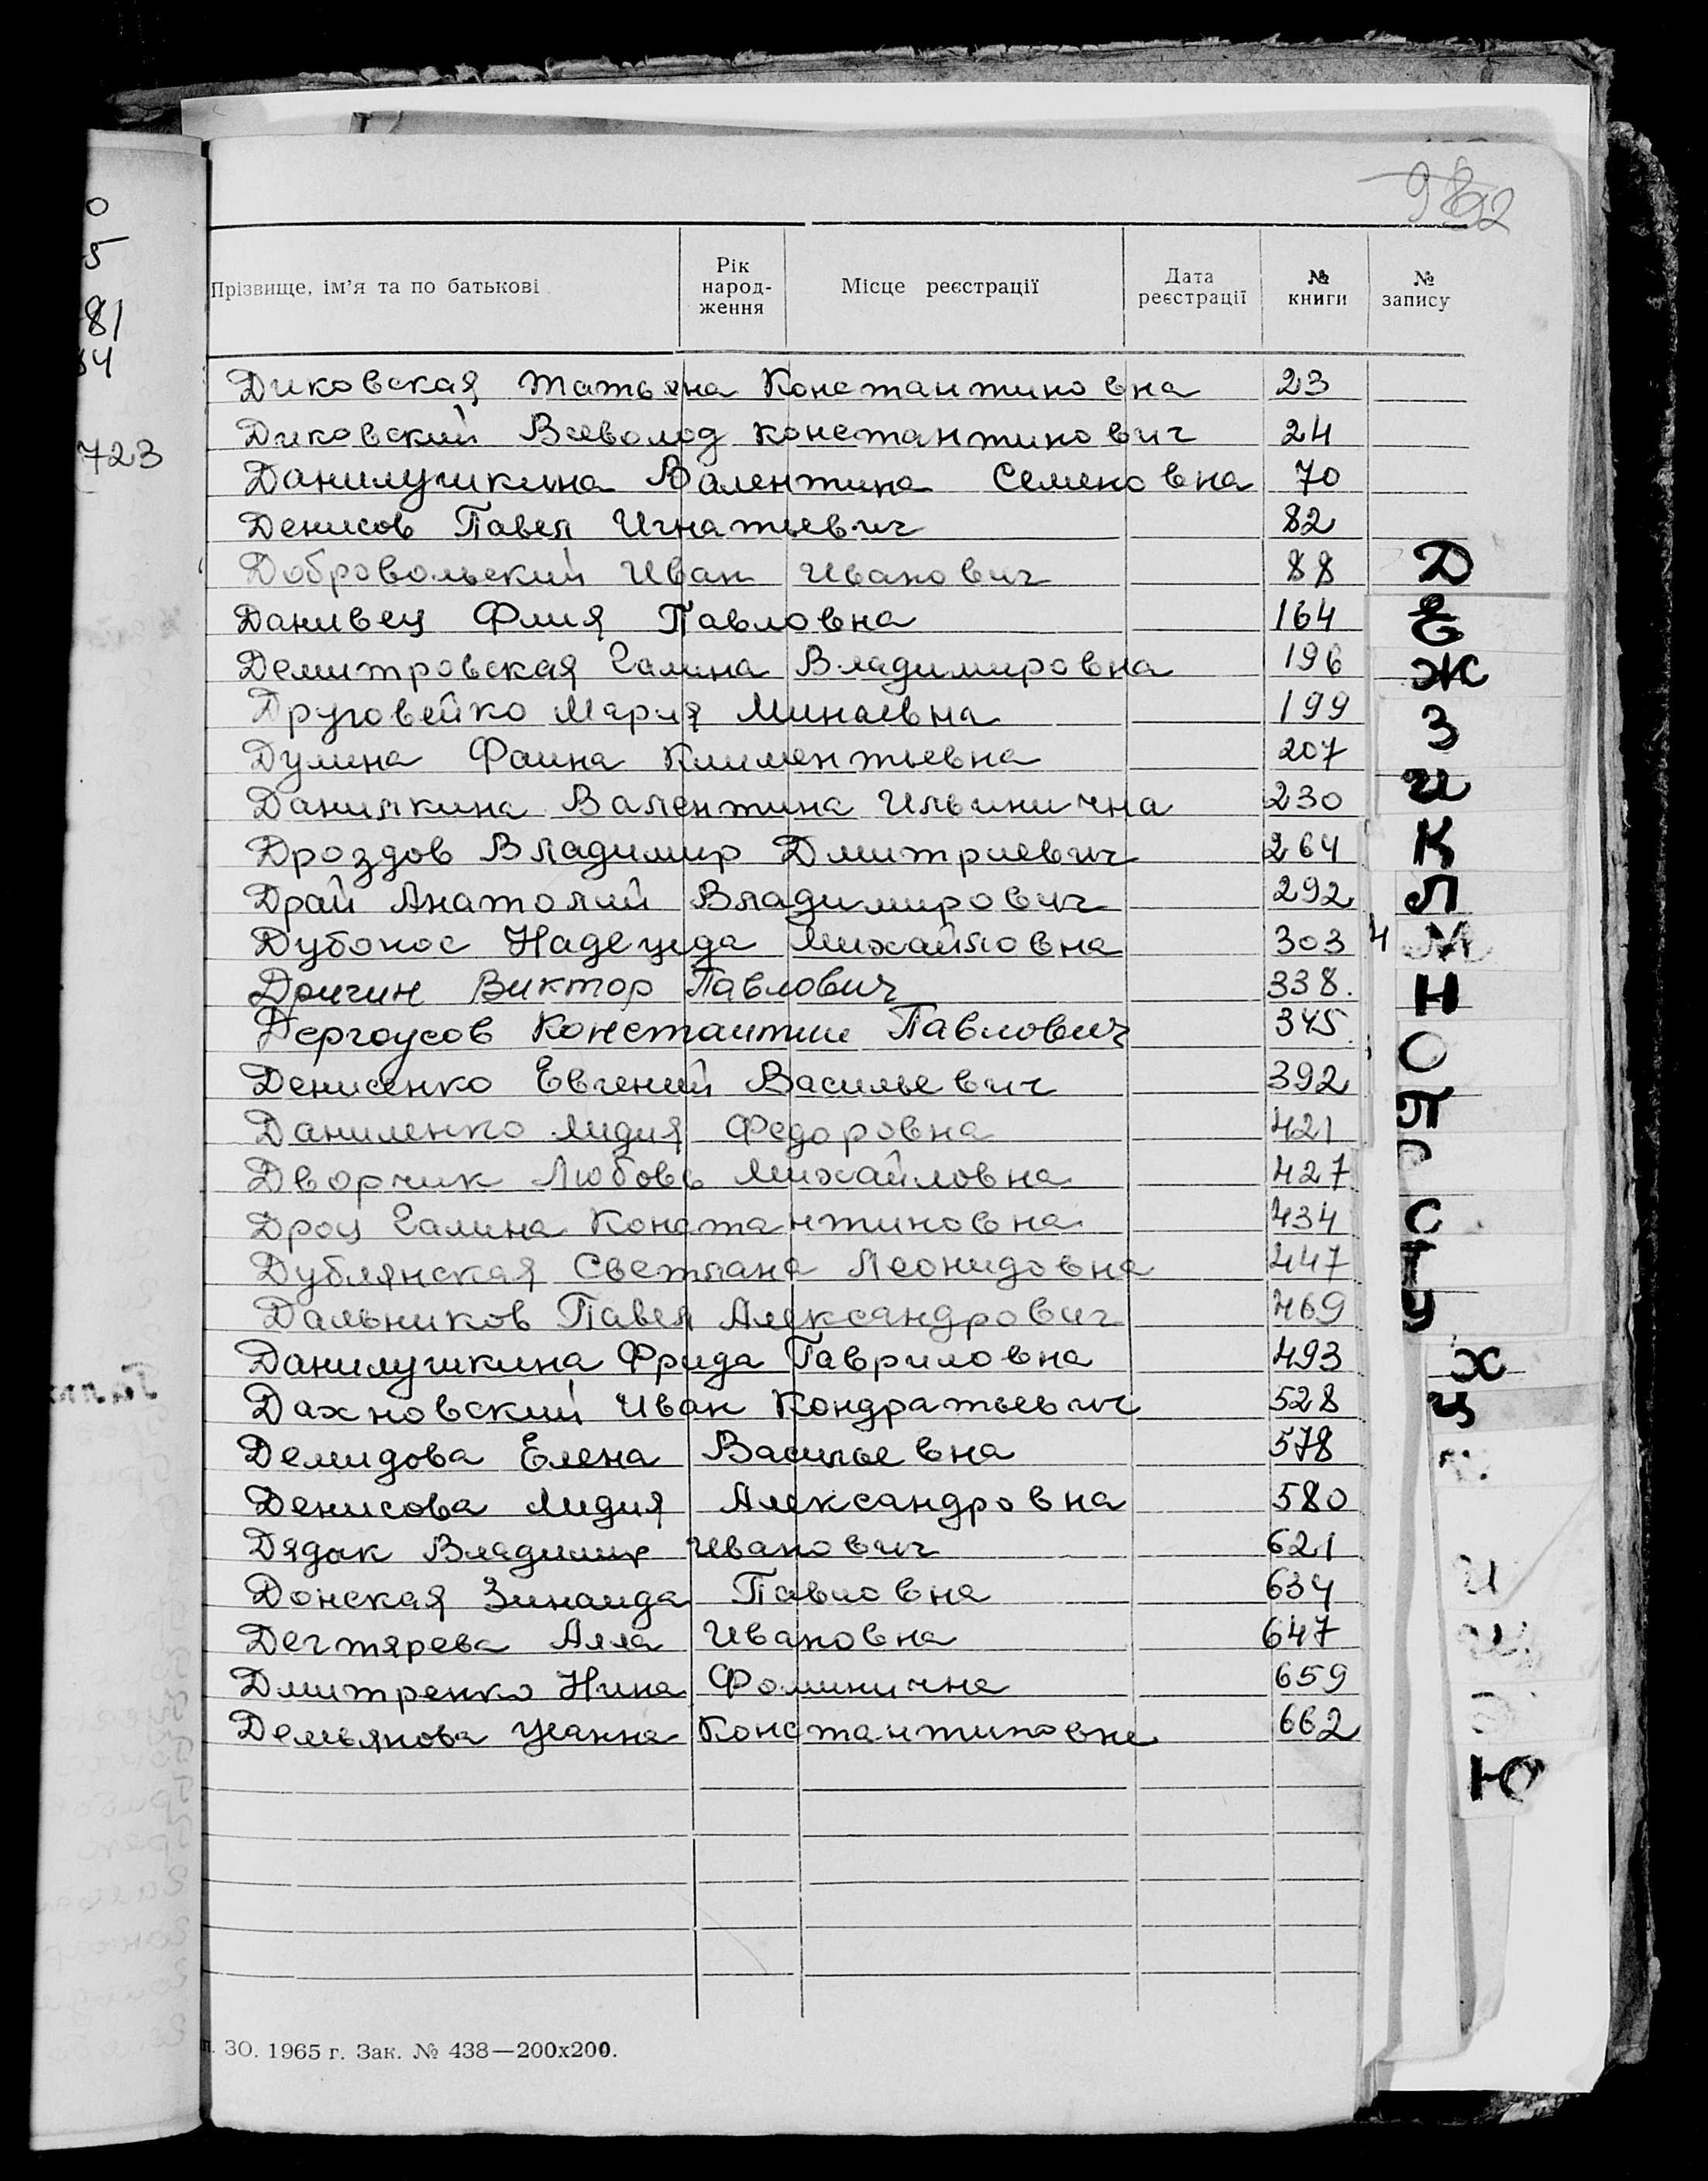 Прізвище, ім'я та по батькові Рік народ-ження Місце реєстрації Дата реєстрації № книги № запису
Диковская Татьяна Константиновна 23
Диковский Всеволод Константинович 24
Данилушкина Валентина Семеновна 70
Денисов Павел Игнатьевич 82
Добровольский Иван Иванович 88
Данивец Юлия Павловна 164
Демитровская Галина Владимировна 196
Друговейко Мария Минаевна 199
Думина Фаина Климентьевна 207
Данилкина Валентина Ильинична 230
Дроздов Владимир Дмитриевич 264
Драй Анатолий Владимирович 292
Дубонос Надежда Михайловна 303
Дричин Виктор Павлович 338.
Дергоусов Константин Павлович 345.
Денисенко Евгений Васильевич 392
Даниленко Лидия Федоровна 421
Дворчик Любовь Михайловна 427
Дроц Галина Константиновна 434
Дублянская Светлана Леонидовна 447
Дальников Павел Александрович 469
Данилушкина Фрида Гавриловна 493
Дахновский Иван Кондратьевич 528
Демидова Елена Васильевна 578
Денисова Лидия Александровна 580
Дядак Владимир Иванович 621
Донская Зинаида Павловна 634
Дегтярева Алла Ивановна 647
Дмитренко Нина Фоминична 659
Демьянова Жанна Константиновна 662
30. 1965 г. Зак. № 438—200х200.
81
723
Д
Е
Ж
З
И
К
Л
М
Н
О
П
Р
С
Т
У
Х
Ц
Ю